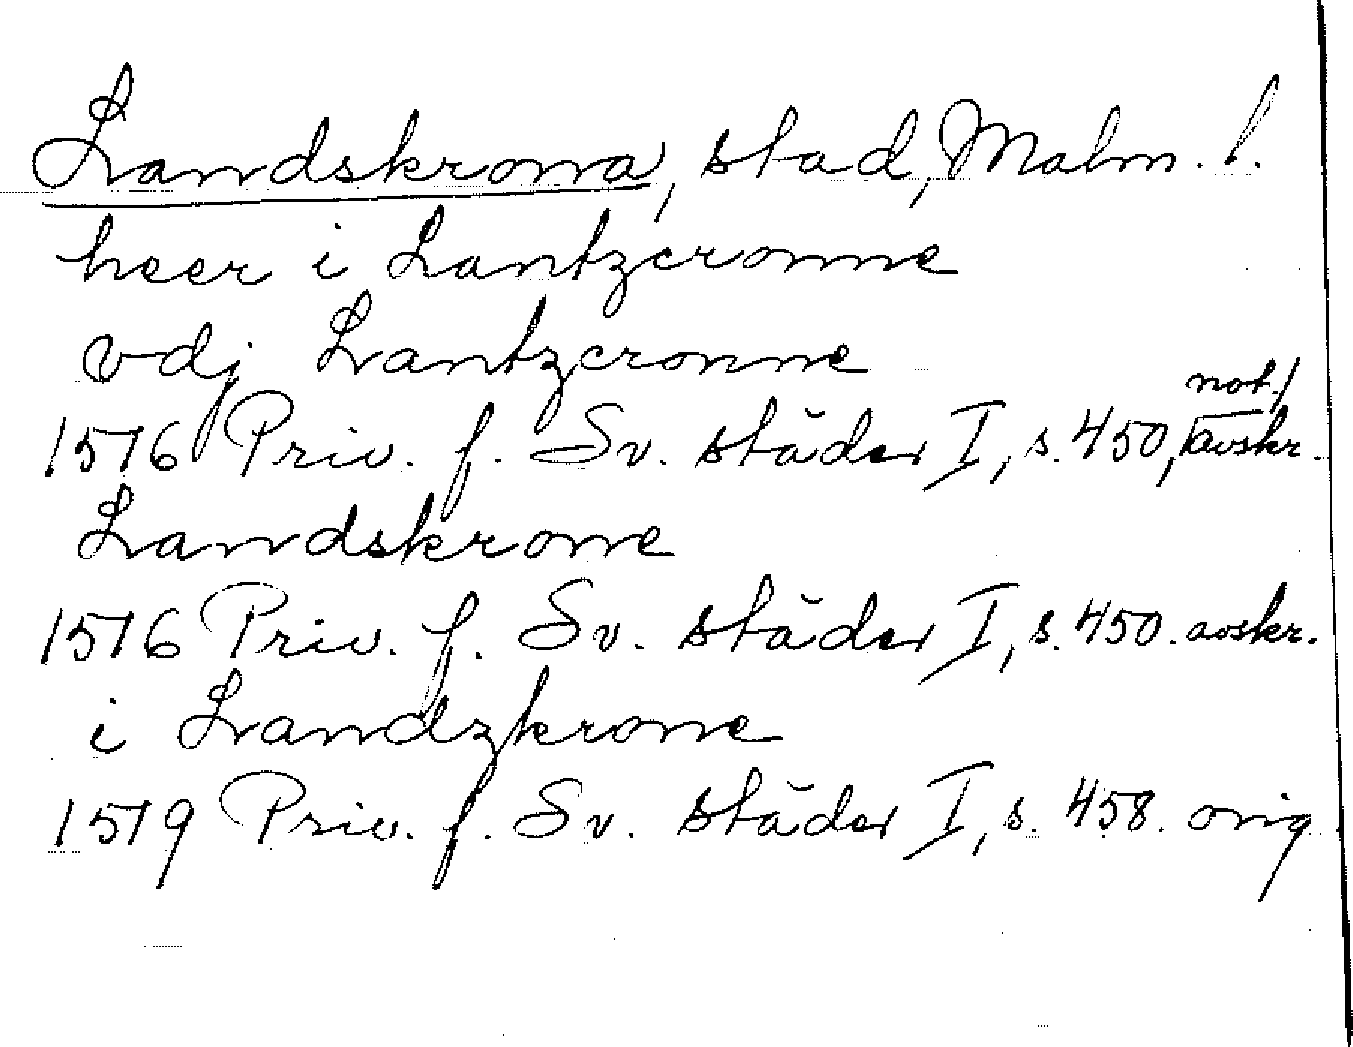 Landskrona, stad, Malm. l.
heer i Lantzcronne
vdj Lantzcronne
1576 Priv. f. Sv. städer I, s. 450, not./avskr.
Landskrone
1576 Priv. f. Sv. städer I, s. 450. avskr.
i Landzkrone
1579 Priv. f. Sv. städer I, s. 458. orig.